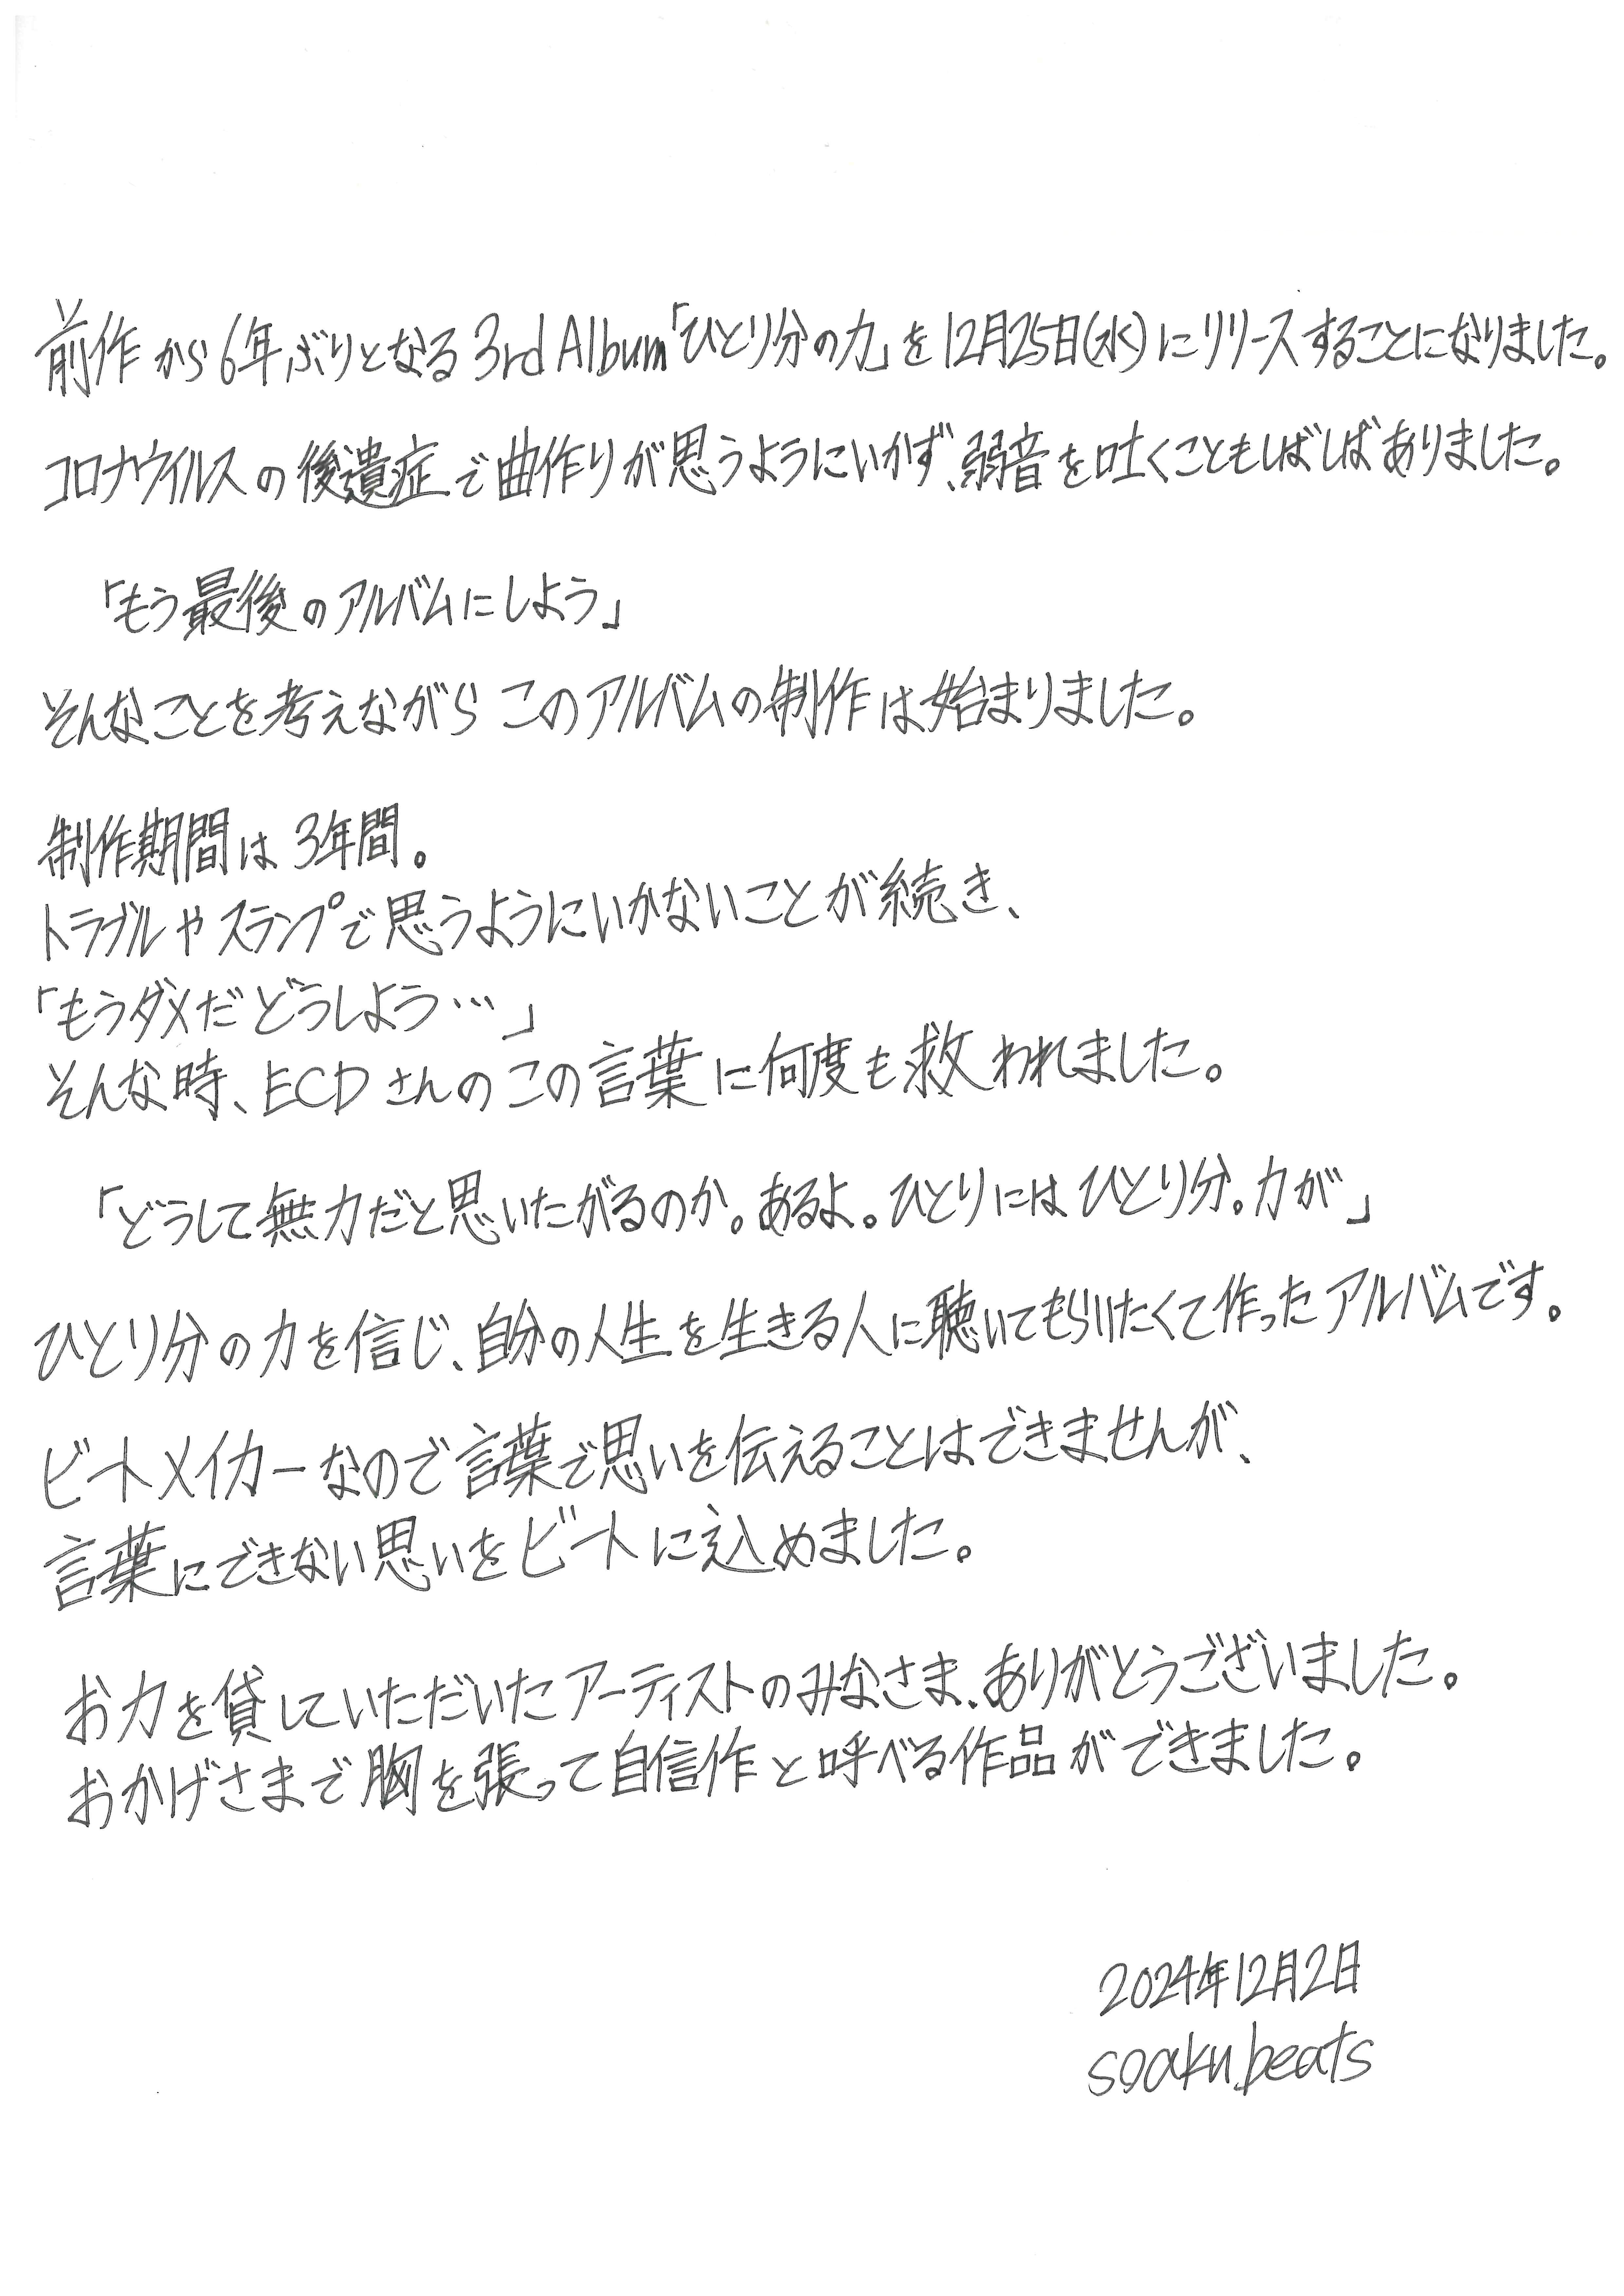 前作から6年ぶりとなる3rd Album「ひとり分の力」を12月25日(水)にリリースすることになりました。
コロナウイルスの後遺症で曲作りが思うようにいかず、弱音を吐くこともしばしばありました。
「もう最後のアルバムにしよう」
そんなことを考えながらこのアルバムの制作は始まりました。
制作期間は3年間。
トラブルやスランプで思うようにいかないことが続き、
「もうダメだどうしよう…」
そんな時、ECDさんのこの言葉に何度も救われました。
「どうして無力だと思いたがるのか。あるよ。ひとりにはひとり分。力が」
ひとり分の力を信じ、自分の人生を生きる人に聴いてもらいたくて作ったアルバムです。
ビートメイカーなので言葉で思いを伝えることはできませんが、
言葉にできない思いをビートに込めました。
お力を貸していただいたアーティストのみなさま、ありがとうございました。
おかげさまで胸を張って自信作と呼べる作品ができました。
2024年12月2日
soakubeats